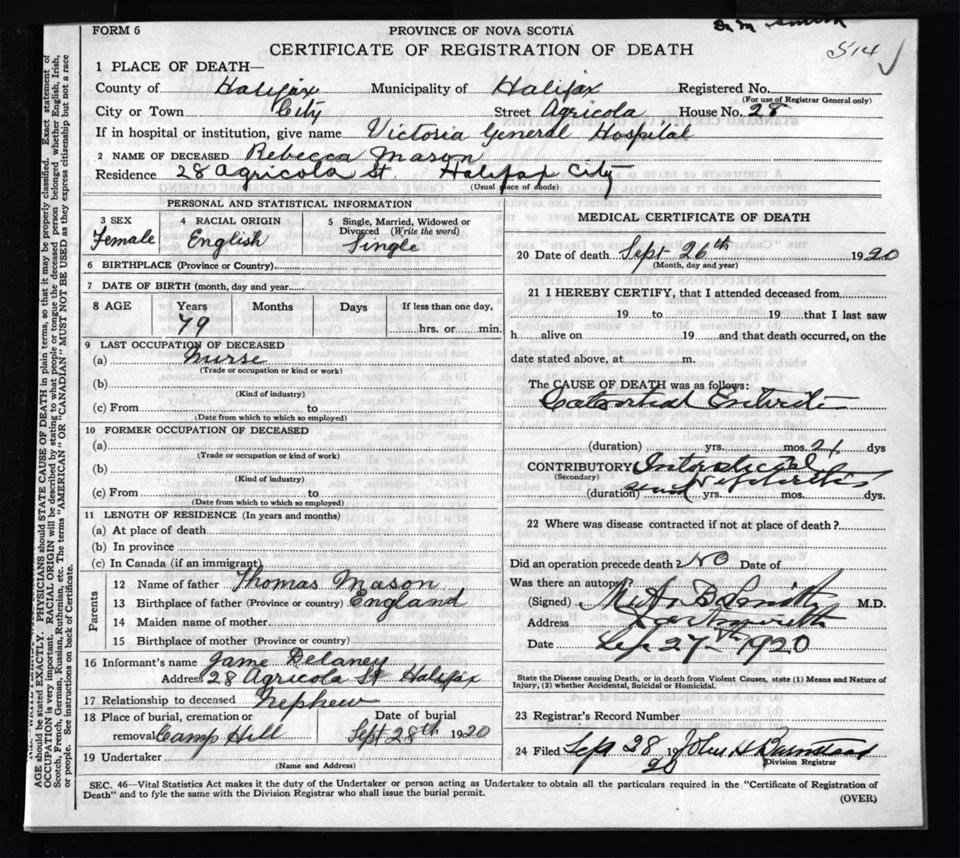 FORM 6
PROVINCE OF NOVA SCOTIA
Dr M Smith
CERTIFICATE OF REGISTRATION OF DEATH
514 ✓
1 PLACE OF DEATH—
County of Halifax Municipality of Halifax Registered No.
(For use of Registrar General only)
City or Town City Street Agricola House No. 28
If in hospital or institution, give name Victoria General Hospital
2 NAME OF DECEASED Rebecca Mason
Residence 28 Agricola St. Halifax City
(Usual place of abode)
PERSONAL AND STATISTICAL INFORMATION
3 SEX Female
4 RACIAL ORIGIN English
5 Single, Married, Widowed or Divorced (Write the word) Single
6 BIRTHPLACE (Province or Country)
7 DATE OF BIRTH (month, day and year)
8 AGE Years Months Days If less than one day,
79 hrs. or min.
9 LAST OCCUPATION OF DECEASED
(a) Nurse
(Trade or occupation or kind or work)
(b)
(Kind of industry)
(c) From to
(Date from which to which so employed)
10 FORMER OCCUPATION OF DECEASED
(a)
(Trade or occupation or kind or work)
(b)
(Kind of industry)
(c) From to
(Date from which to which so employed)
11 LENGTH OF RESIDENCE (In years and months)
(a) At place of death
(b) In province
(c) In Canada (if an immigrant)
Parents
12 Name of father Thomas Mason
13 Birthplace of father (Province or country) England
14 Maiden name of mother
15 Birthplace of mother (Province or country)
16 Informant's name Jame Delaney
Address 28 Agricola St Halifax
17 Relationship to deceased Nephew
18 Place of burial, cremation or removal Camp Hill
Date of burial Sept 28th 1920
19 Undertaker
(Name and Address)
MEDICAL CERTIFICATE OF DEATH
20 Date of death Sept 26th 1920
(Month, day and year)
21 I HEREBY CERTIFY, that I attended deceased from
19 to 19 that I last saw
h alive on 19 and that death occurred, on the
date stated above, at m.
The CAUSE OF DEATH was as follows:
Enteritis
(duration) yrs. mos. 21 dys
CONTRIBUTORY Interstitial
(Secondary) Nephritis
(duration) yrs. mos. dys.
22 Where was disease contracted if not at place of death?
Did an operation precede death? No Date of
Was there an autopsy?
(Signed) B Smith M.D.
Address Dartmouth
Date Sep 27th 1920
State the Disease causing Death, or in death from Violent Causes, state (1) Means and Nature of
Injury, (2) whether Accidental, Suicidal or Homicidal.
23 Registrar's Record Number
24 Filed Sep 28 1920 John H Barnstead
Division Registrar
SEC. 46—Vital Statistics Act makes it the duty of the Undertaker or person acting as Undertaker to obtain all the particulars required in the "Certificate of Registration of
Death" and to fyle the same with the Division Registrar who shall issue the burial permit.
(OVER)
AGE should be stated EXACTLY. PHYSICIANS should STATE CAUSE OF DEATH in plain terms, so that it may be properly classified. Exact statement of
OCCUPATION is very important. RACIAL ORIGIN will be described by stating to what people or tongue the deceased person belonged whether English, Irish,
Scotch, French, German, Russian, Ruthenian, etc. The terms "AMERICAN" OR "CANADIAN" MUST NOT BE USED as they express citizenship but not a race
or people. See instructions on back of Certificate.